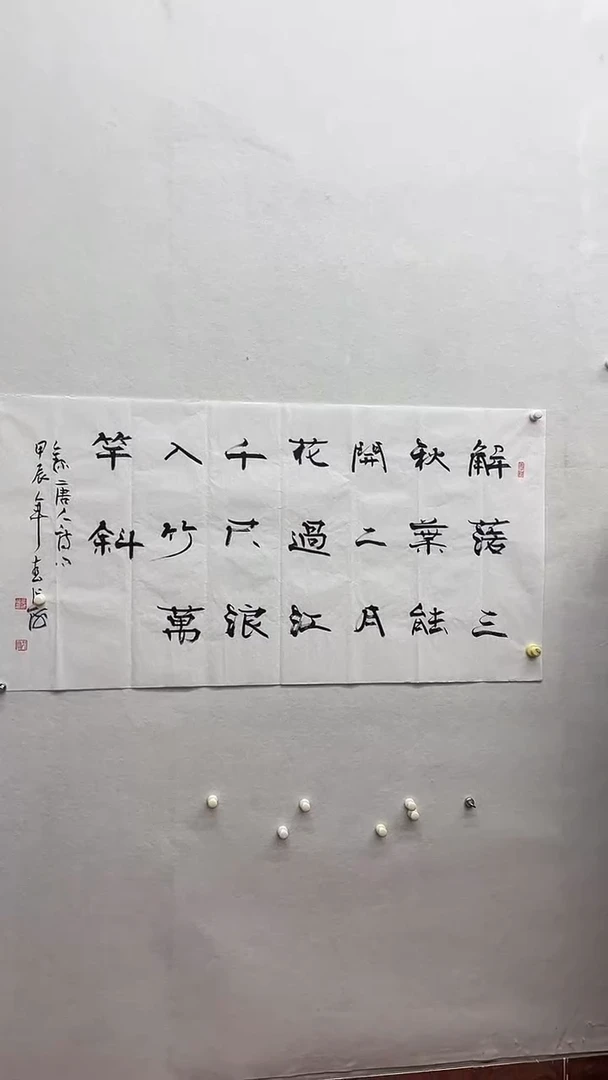 解落三
秋葉能
開二月
花過江
千尺浪
入竹萬
竿斜
錄唐人詩
甲辰年